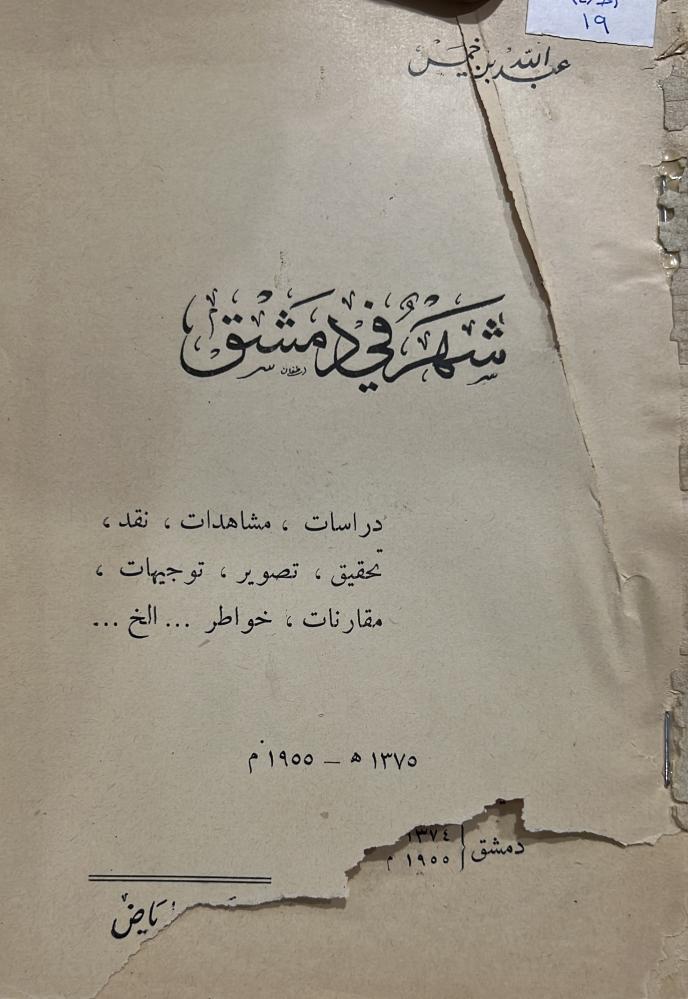 ١٩
عبد الله بن خميس
شَهر في دمَشق
دراسات ، مشاهدات ، نقد ،
تحقيق ، تصوير ، توجيهات ،
مقارنات ، خواطر ... الخ ...
١٣٧٥ ه – ١٩٥٥ م
دمشق { ١٣٧٤
١٩٥٥ م